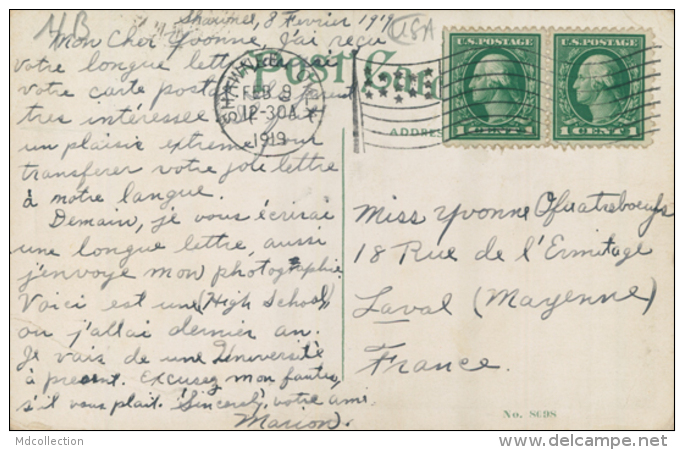 HB
Shawnee, 8 Fevrier 1919
USA
Mon Cher Yvonne, J'ai reçu
votre longue lettre, aussi
votre carte postale.
tres intéressée
un plaisir extreme pour
transferer votre joli lettre
à notre langue.
Demain, je vous écrirai
une longue lettre, aussi
j'envoye mon photographie.
Voici est une (High School)
ou j'allai dernier an.
Je vais de une Université
à present. Excusez mon fautes,
s'il vous plait. Sincerely, votre ami
Marion.
POST CARD
ADDRESS
SHAWNEE
FEB 8
12-30A
1919
U.S. POSTAGE
1 CENT 1
U.S. POSTAGE
1 CENT 1
Miss Yvonne Quatreboeufs
18 Rue de l'Ermitage
Laval (Mayenne)
France.
No. 8698
Mdcollection
http://www.delcampe.net